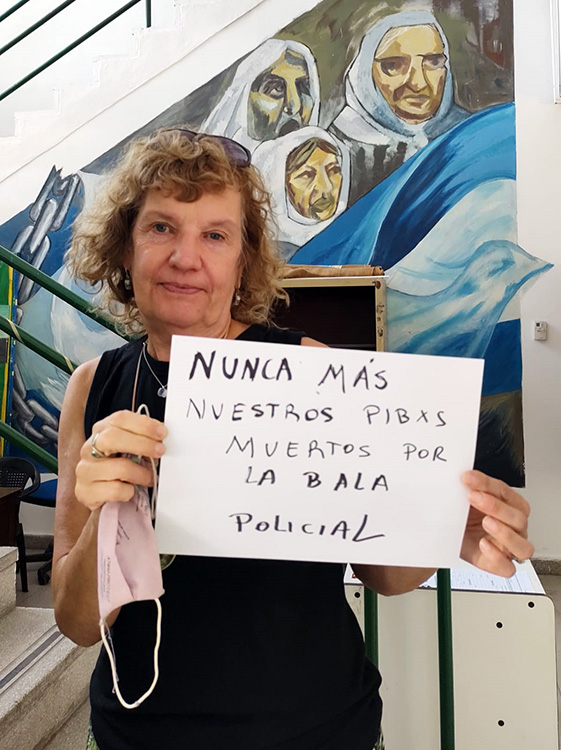 NUNCA MÁS
NUESTROS PIBXS
MUERTOS POR
LA BALA
POLICIAL